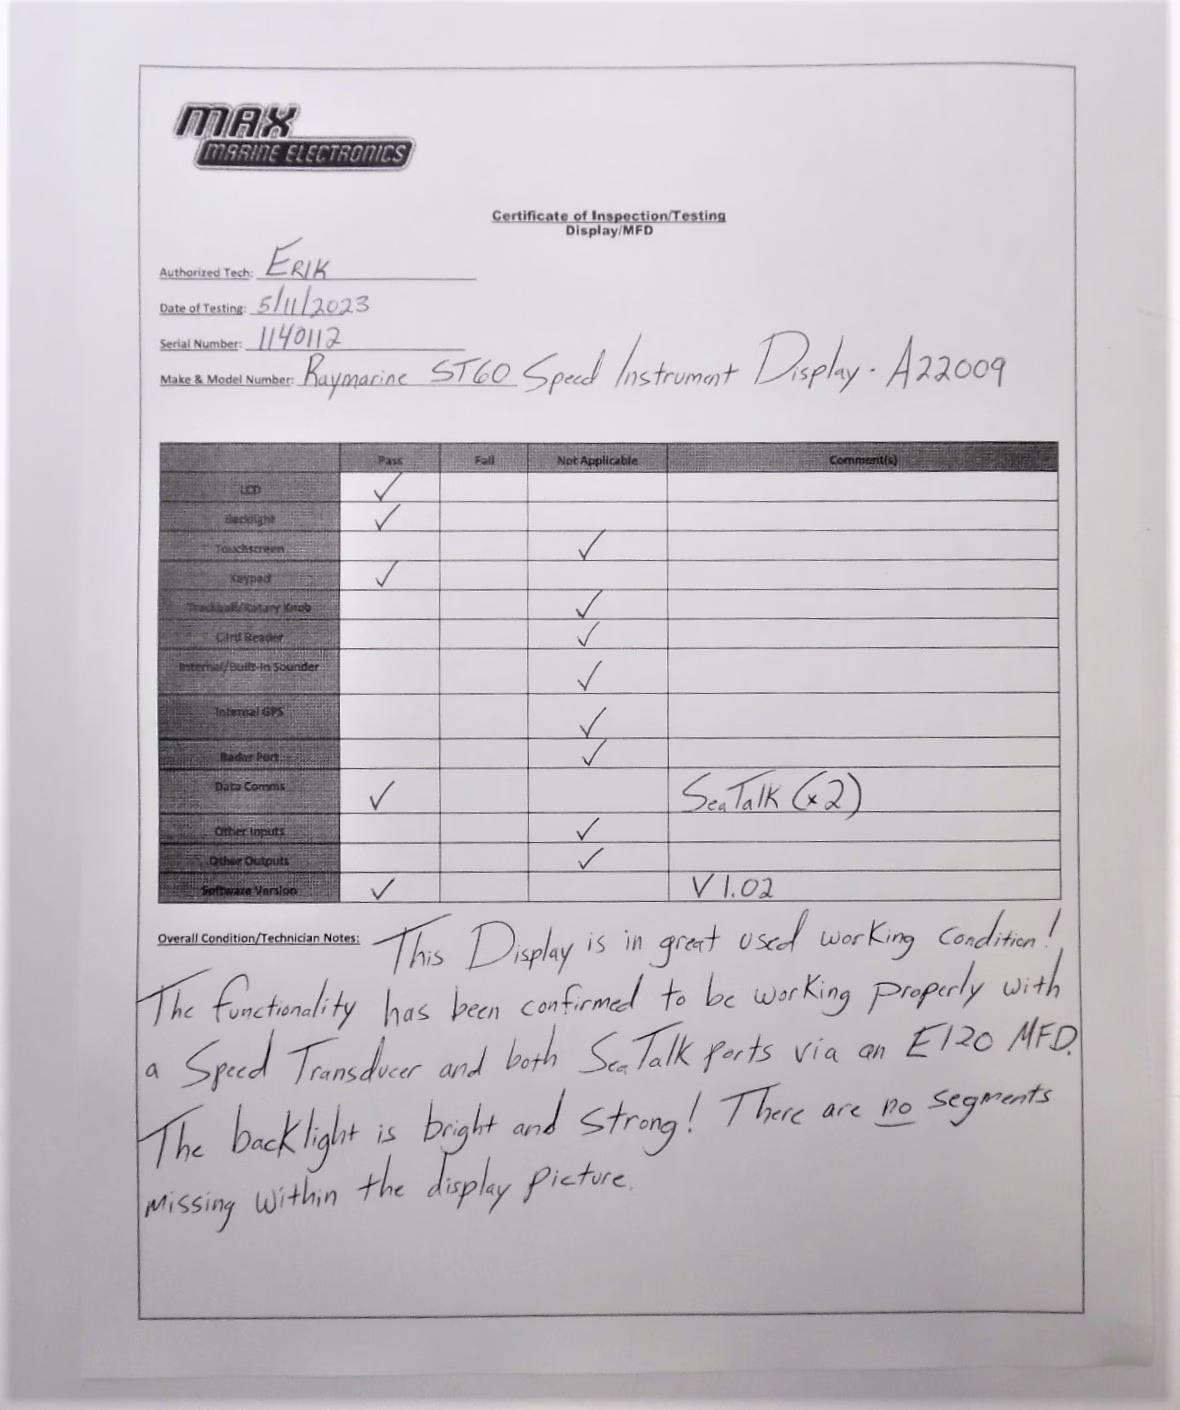 MAX
MARINE ELECTRONICS
Certificate of Inspection/Testing
Display/MFD
Authorized Tech: ERIK
Date of Testing: 5/11/2023
Serial Number: 1140112
Make & Model Number: Raymarine ST60 Speed Instrument Display - A22009
Pass Fail Not Applicable Comment(s)
LCD ✓
Backlight ✓
Touchscreen ✓
Keypad ✓
Trackball/Rotary Knob ✓
Card Reader ✓
Internal/Built-In Sounder ✓
Internal GPS ✓
Radar Port ✓
Data Comms ✓ SeaTalk (x2)
Other Inputs ✓
Other Outputs ✓
Software Version ✓ V 1.02
Overall Condition/Technician Notes: This Display is in great used working condition!
The functionality has been confirmed to be working properly with
a Speed Transducer and both SeaTalk ports via an E120 MFD.
The backlight is bright and strong! There are no segments
missing within the display picture.